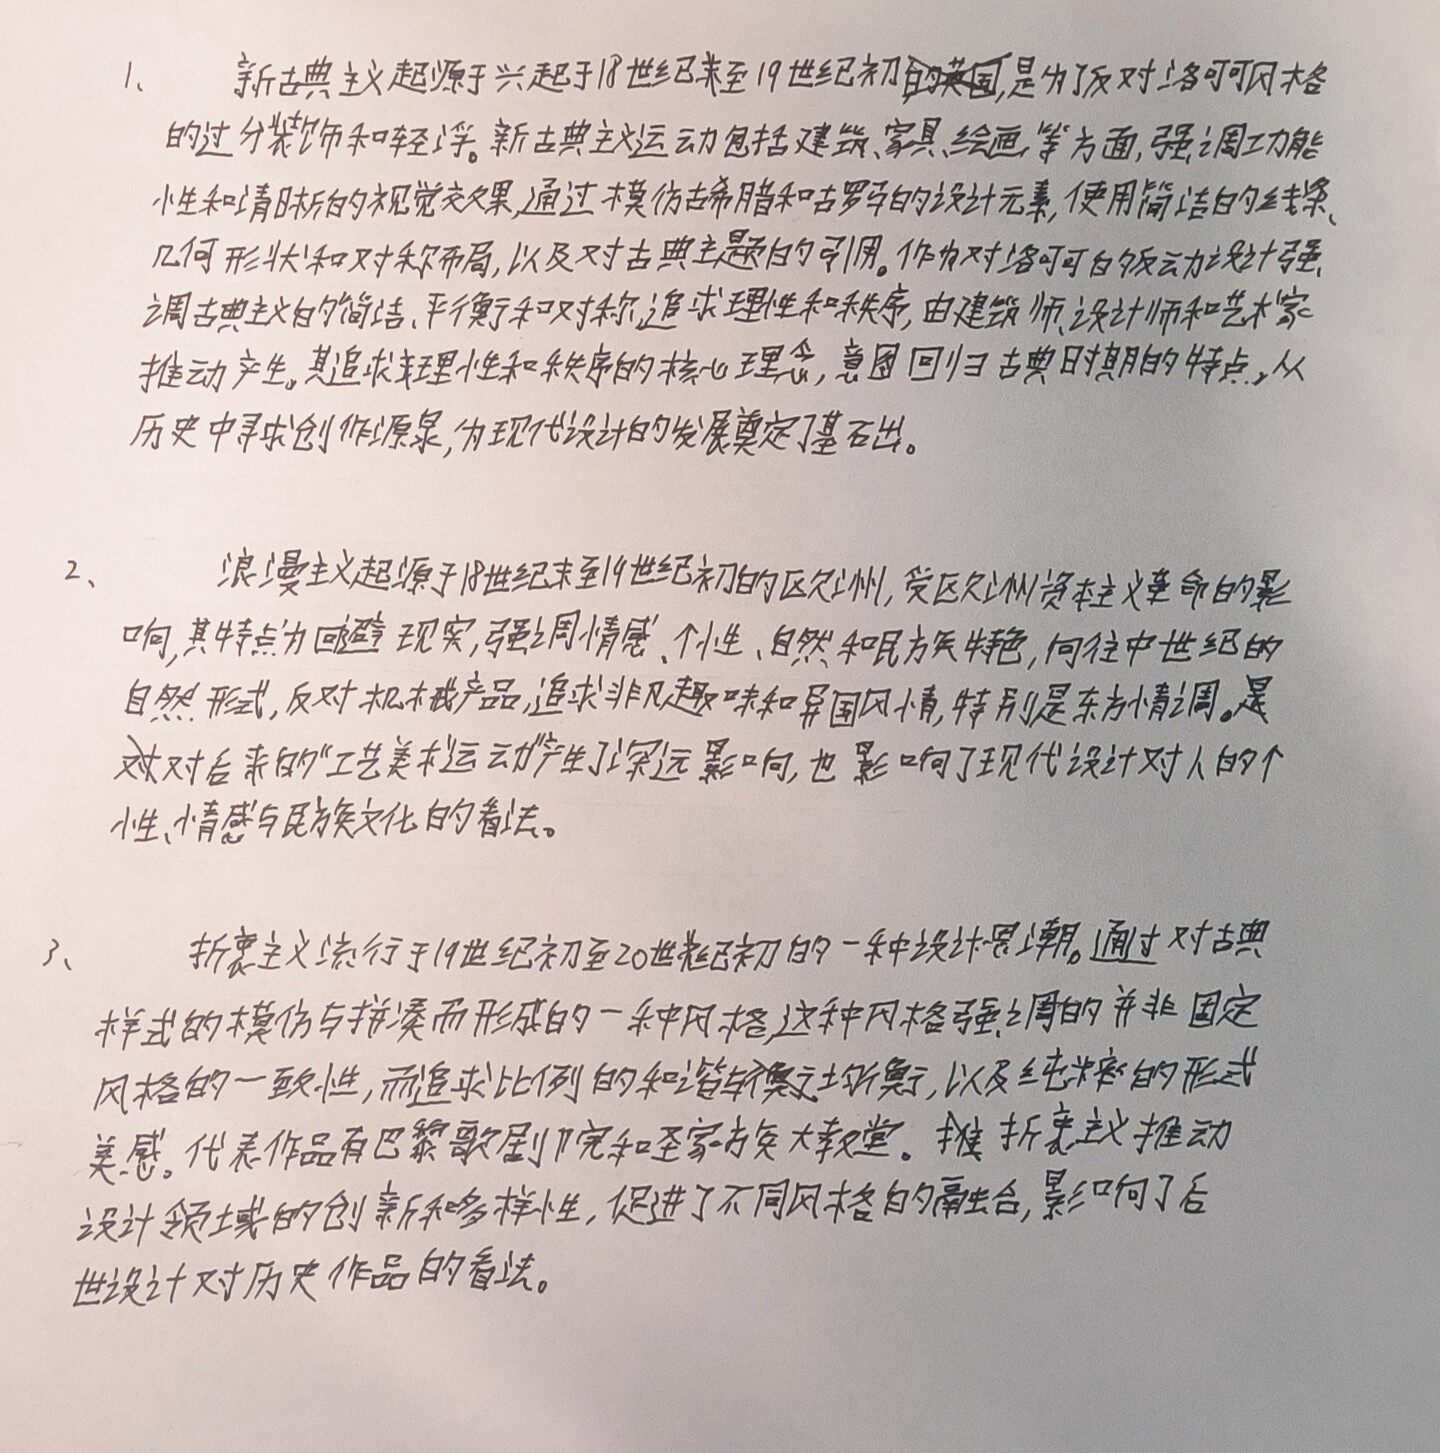 1、 新古典主义起源于兴起于18世纪末至19世纪初，是为了反对洛可可风格
的过分装饰和轻浮。新古典主义运动包括建筑、家具、绘画等方面，强调功能
性和清晰的视觉效果，通过模仿古希腊和古罗马的设计元素，使用简洁的线条、
几何形状和对称布局，以及对古典主题的引用。作为对洛可可的反动设计强
调古典主义的简洁、平衡和对称，追求理性和秩序，由建筑师、设计师和艺术家
推动产生。其追求理性和秩序的核心理念，意图回归古典时期的特点，从
历史中寻求创作源泉，为现代设计的发展奠定了基石出。
2、 浪漫主义起源于18世纪末至19世纪初的区欠洲，受区欠洲资本主义革命的影
响，其特点为回避现实，强调情感、个性、自然和民族特色，向往中世纪的
自然形式，反对机械产品，追求非凡趣味和异国风情，特别是东方情调。是
对后来的“工艺美术运动”产生了深远影响，也影响了现代设计对人的个
性、情感与民族文化的看法。
3、 折衷主义流行于19世纪初至20世纪初的一种设计思潮。通过对古典
样式的模仿与拼凑而形成的一种风格，这种风格强调的并非固定
风格的一致性，而追求比例的和谐与均衡，以及纯粹的形式
美感。代表作品有巴黎歌剧院和圣家族大教堂。推折衷主义推动
设计领域的创新和多样性，促进了不同风格的融合，影响了后
世设计对历史作品的看法。